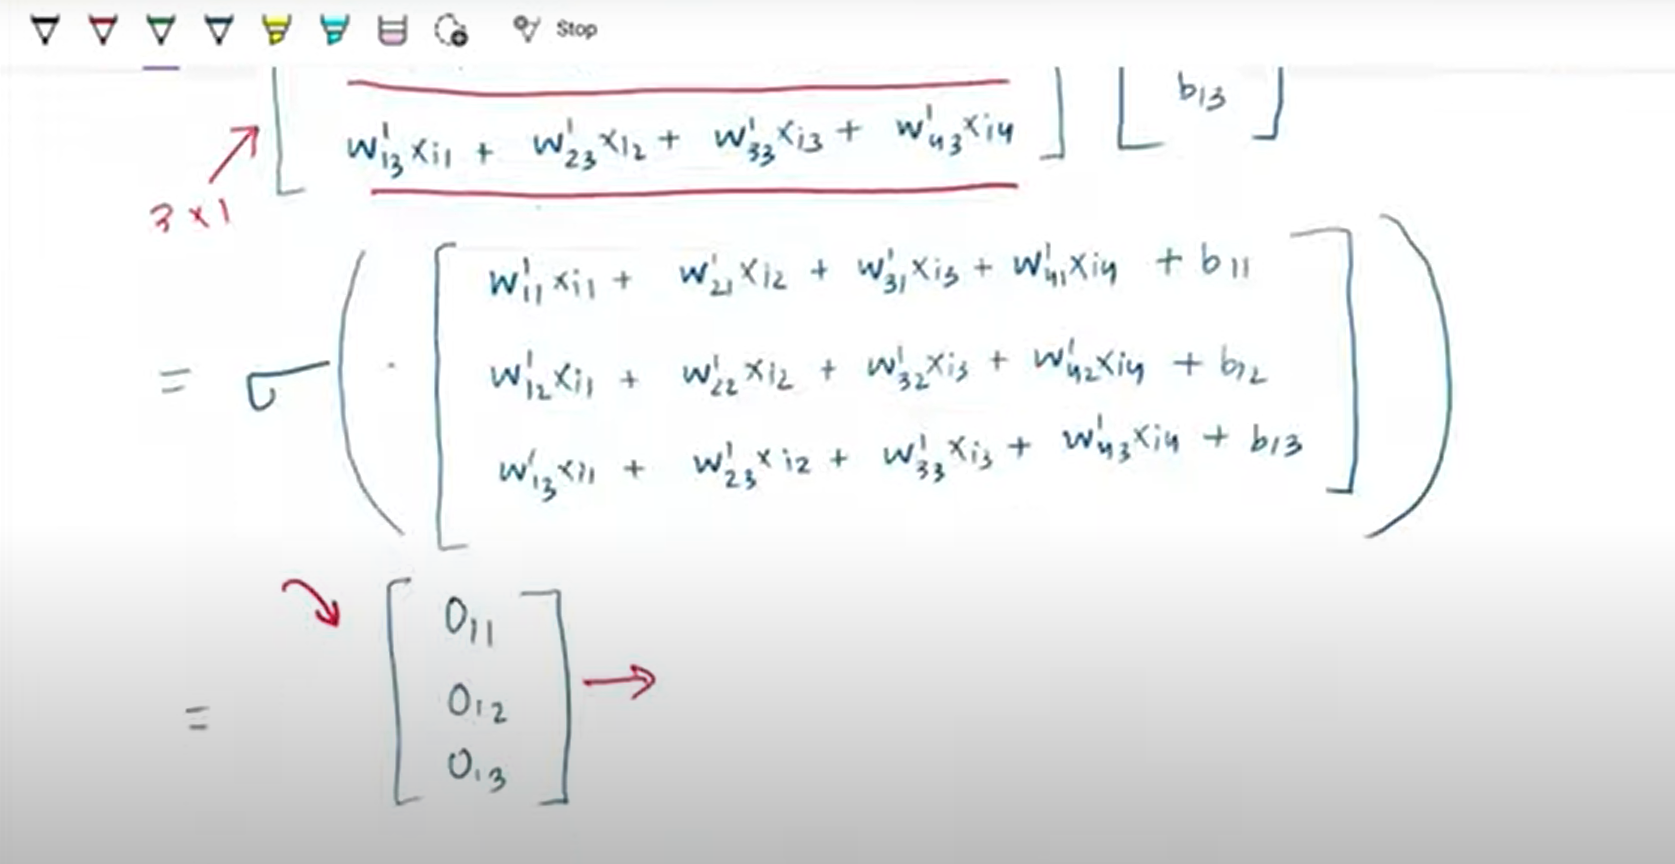 Stop
b₁₃
w¹₁₃xᵢ₁ + w¹₂₃xᵢ₂ + w¹₃₃xᵢ₃ + w¹₄₃xᵢ₄
3 × 1
w¹₁₁xᵢ₁ + w¹₂₁xᵢ₂ + w¹₃₁xᵢ₃ + w¹₄₁xᵢ₄ + b₁₁
= σ ( w¹₁₂xᵢ₁ + w¹₂₂xᵢ₂ + w¹₃₂xᵢ₃ + w¹₄₂xᵢ₄ + b₁₂ )
w¹₁₃xᵢ₁ + w¹₂₃xᵢ₂ + w¹₃₃xᵢ₃ + w¹₄₃xᵢ₄ + b₁₃
O₁₁
= O₁₂ →
O₁₃